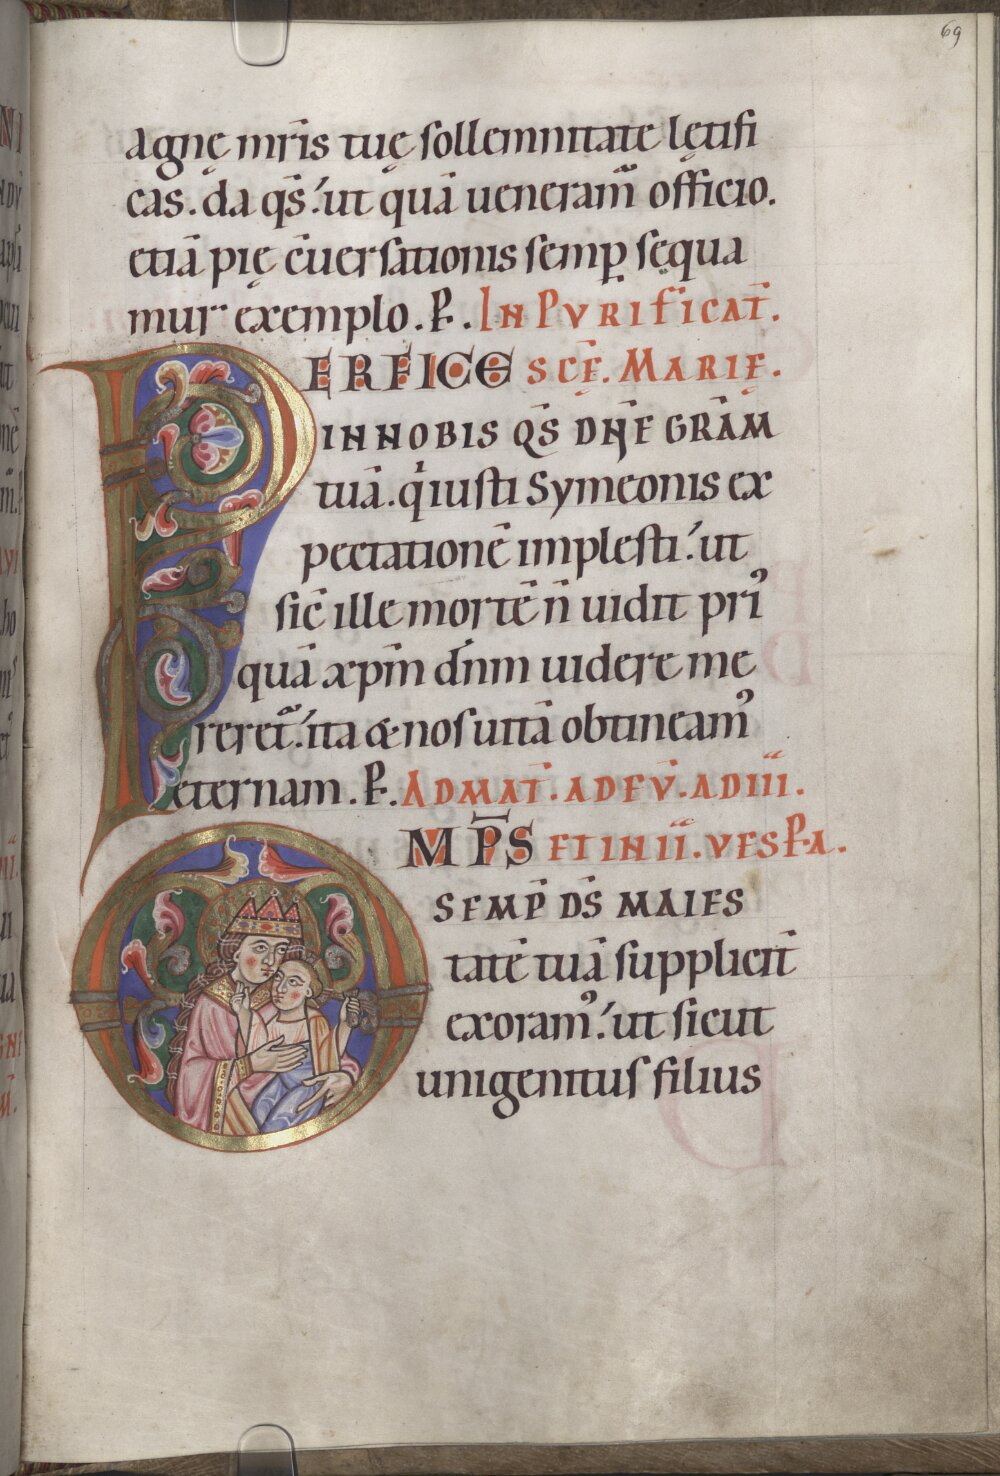 69
Agnę mr̄is tuę sollemnitate lętifi
cas. da q̄s. ut quā ueneram᷑ officio.
etiā pię c̄uersationis semꝑ sequa
mur exemplo. P̱. IN PVRIFICAT̄.
PERFICE SCĒ. MARIĘ.
IN NOBIS Q̄S DN̄E GRĀM
tuā. qͥ iusti Symeonis ex
pectationē implesti. ut
sic̄ ille mortē n̄ uidit priꝰ
quā xp̄m dn̄m uidere me
reret᷑. ita & nos uitā obtineamꝰ
eternam. P̱. AD MAT̄. AD EV̄. AD III.
OMP̄S ET IN II. VESP̱A.
SEMP̄ DS̄ MAIES
tatē tuā supplicit̄
exoramꝰ. ut sicut
unigenitus filius